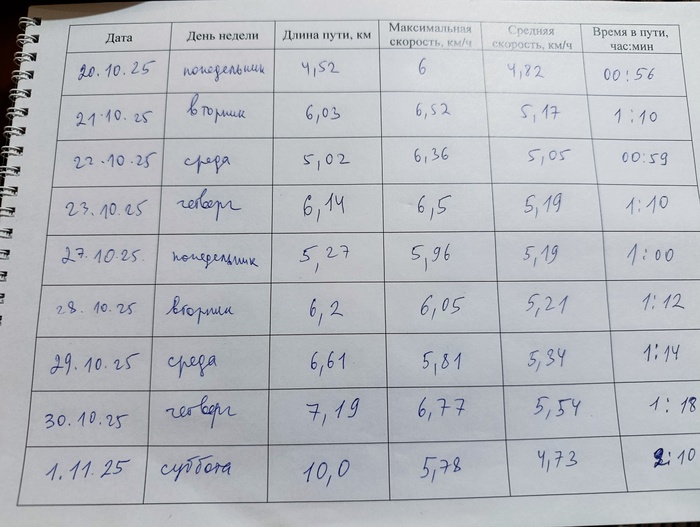 Дата День недели Длина пути, км Максимальная скорость, км/ч Средняя скорость, км/ч Время в пути, час:мин
20.10.25 понедельник 4,52 6 4,82 00:56
21.10.25 вторник 6,03 6,52 5,17 1:10
22.10.25 среда 5,02 6,36 5,05 00:59
23.10.25 четверг 6,14 6,5 5,19 1:10
27.10.25. понедельник 5,27 5,96 5,19 1:00
28.10.25 вторник 6,2 6,05 5,21 1:12
29.10.25 среда 6,61 5,81 5,34 1:14
30.10.25 четверг 7,19 6,77 5,54 1:18
1.11.25 суббота 10,0 5,78 4,73 2:10